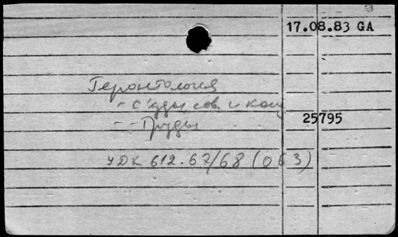 17.08.83 GA
Геронтология
- Съезды, сов. и конф
- - Труды
25795
УДК 612.67/68 (063)